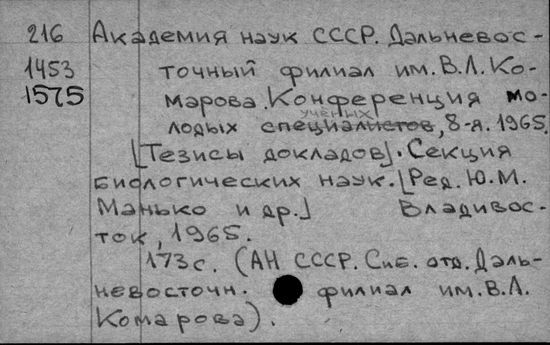 216 Академия наук СССР. Дальневос-
1453 точный филиал им. В.Л. Ко-
1575 марова. Конференция мо-
учёных
лодых специалистов, 8-я. 1965.
[Тезисы докладов]. Секция
биологических наук. [Ред. Ю.М.
Манько и др.] Владивос-
ток, 1965.
173с. (АН СССР. Сиб. отд. Даль-
невосточн. филиал им. В.Л.
Комарова).